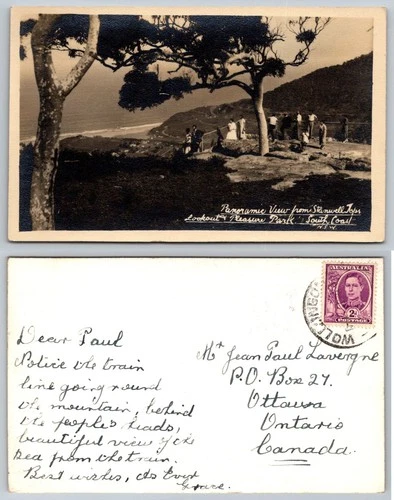 Panoramic View from Stanwell Tops
Lookout & Pleasure Park. South Coast
N.S.W.
AUSTRALIA
2D
POSTAGE
WOLLONGO
Dear Paul
Police the train
line going round
the mountain, behind
the people's heads,
beautiful view of the
sea from the train.
Best wishes, As Ever
Grace.
Mr Jean Paul Lavergne
P.O. Box 27.
Ottawa
Ontario
Canada.